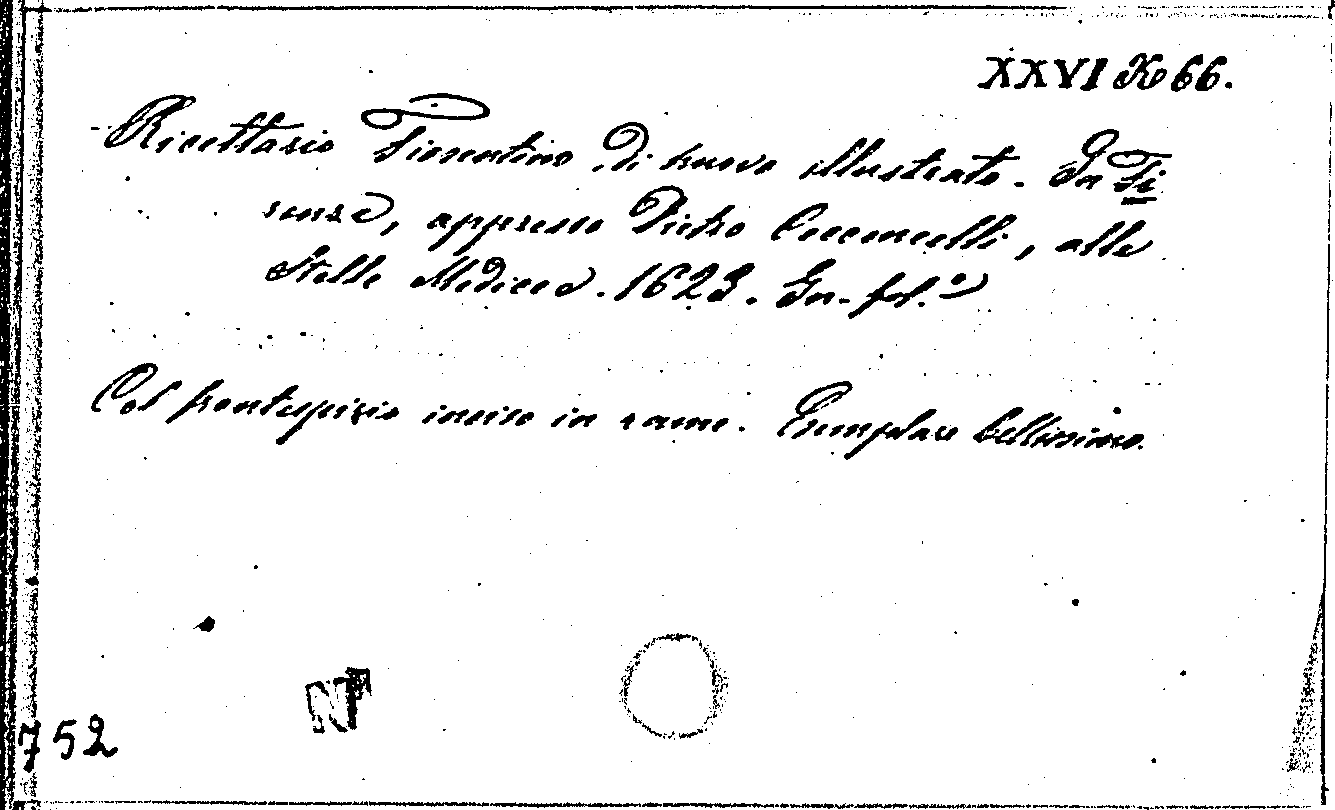 XXVI K 66.
Ricettario Fiorentino di nuovo illustrato. In Fi
renze, appresso Pietro Cecconcelli, alle
Stelle Medicee. 1623. In-fol.º
Col frontespizio inciso in rame. Esemplare bellissimo.
N
752